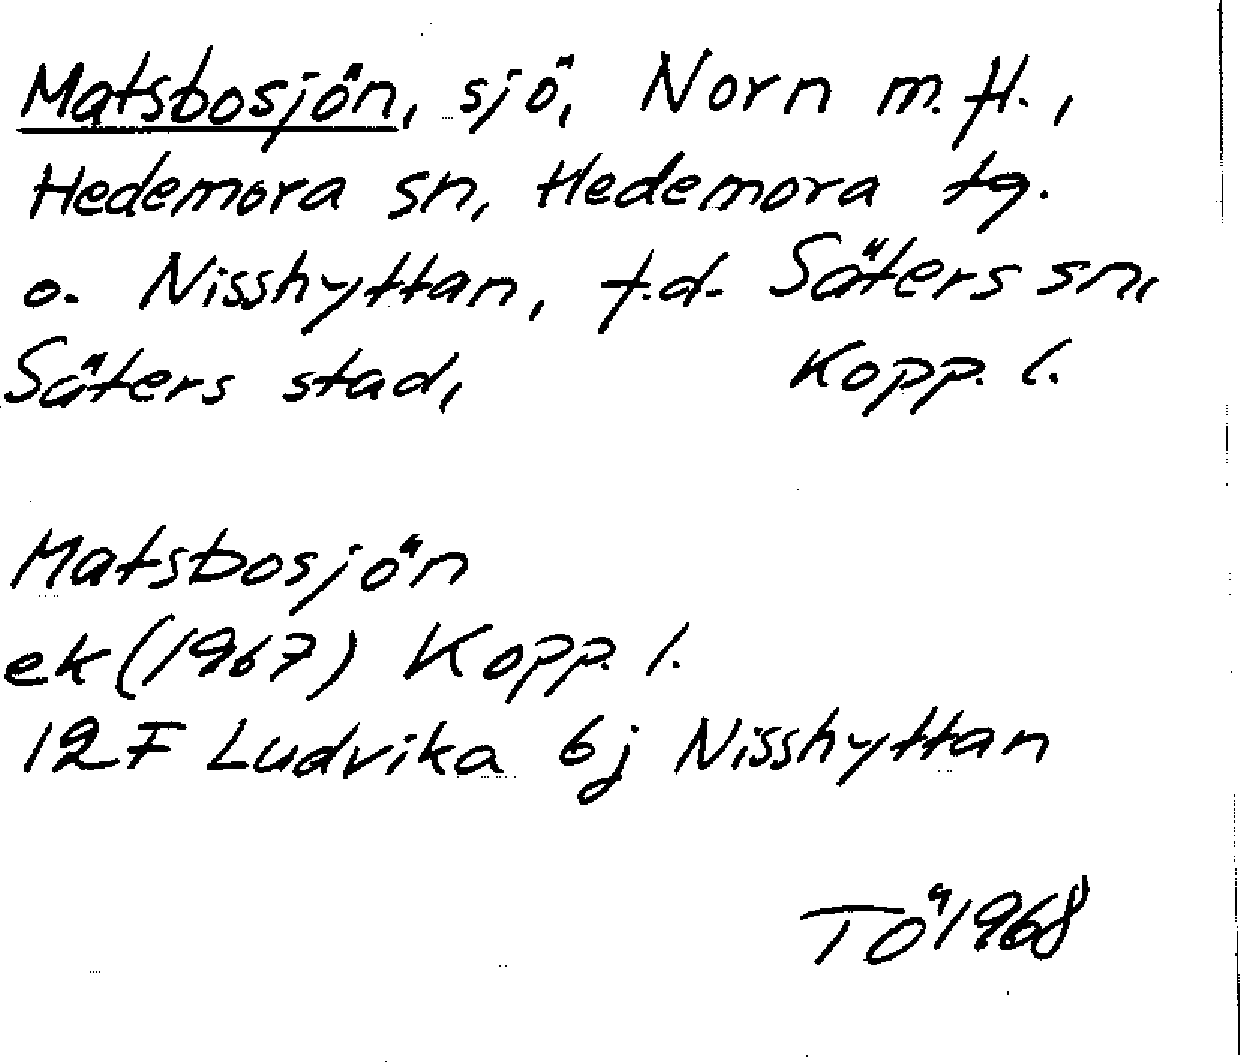 Matsbosjön, sjö, Norn m.fl.,
Hedemora sn, Hedemora tg.
o. Nisshyttan, f.d. Säters sn,
Säters stad, Kopp. l.
Matsbosjön
ek (1967) Kopp. l.
12 F Ludvika 6j Nisshyttan
TÖ 1968